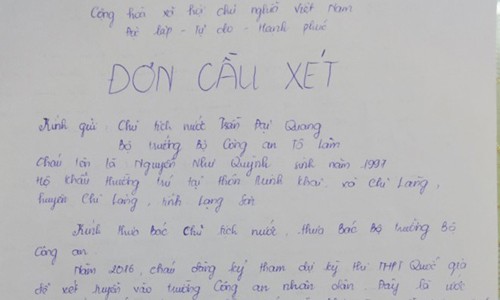 Cộng hòa xã hội chủ nghĩa Việt Nam
Độc lập - Tự do - Hạnh phúc
ĐƠN CẦU XÉT
Kính gửi : Chủ tịch nước Trần Đại Quang
Bộ trưởng Bộ Công an Tô Lâm
Cháu tên là Nguyễn Như Quỳnh sinh năm 1997
Hộ khẩu thường trú tại thôn Minh Khai xã Chi Lăng,
huyện Chi Lăng, tỉnh Lạng Sơn
Kính thưa bác Chủ tịch nước, thưa bác Bộ trưởng Bộ
Công an
Năm 2016, cháu đăng ký tham dự kỳ thi THPT Quốc gia
để xét tuyển vào trường Công an nhân dân. Đây là ước